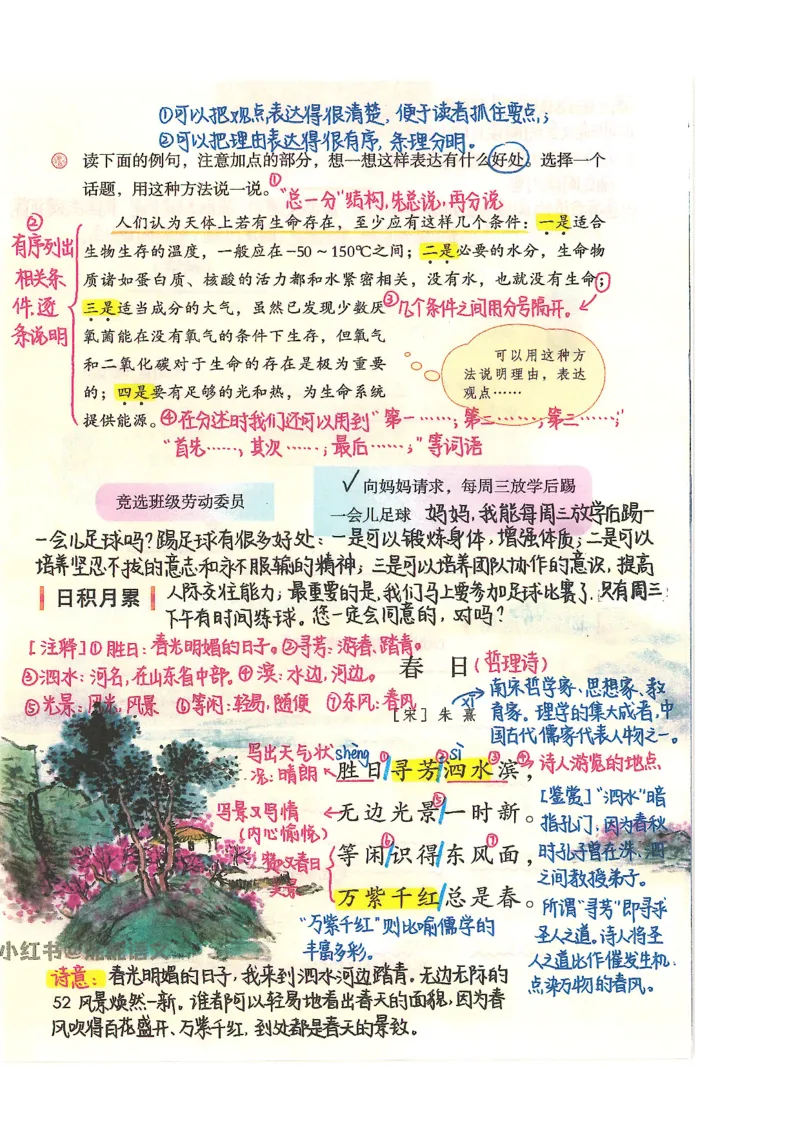 ①可以把观点表达得很清楚，便于读者抓住要点；
②可以把理由表达得很有序，条理分明。
读下面的例句，注意加点的部分，想一想这样表达有什么好处。选择一个
话题，用这种方法说一说。
①"总一分"结构，先总说，再分说
人们认为天体上若有生命存在，至少应有这样几个条件：一是适合
生物生存的温度，一般应在-50～150℃之间；二是必要的水分，生命物
质诸如蛋白质、核酸的活力都和水紧密相关，没有水，也就没有生命；
三是适当成分的大气，虽然已发现少数厌
氧菌能在没有氧气的条件下生存，但氧气
和二氧化碳对于生命的存在是极为重要
的；四是要有足够的光和热，为生命系统
提供能源。
②
有序列出
相关条
件，逐
条说明
③几个条件之间用分号隔开。
可以用这种方
法说明理由，表达
观点……
④在分述时我们还可以用到"第一……；第二……；第三……；"
"首先……，其次……；最后……；"等词语
竞选班级劳动委员
√向妈妈请求，每周三放学后踢
一会儿足球
妈妈，我能每周三放学后踢一
一会儿足球吗？踢足球有很多好处：一是可以锻炼身体，增强体质；二是可以
培养坚忍不拔的意志和永不服输的精神；三是可以培养团队协作的意识，提高
人际交往能力；最重要的是，我们马上要参加足球比赛了，只有周三
下午有时间练球。您一定会同意的，对吗？
日积月累
[注释]①胜日：春光明媚的日子。②寻芳：游春、踏青。
③泗水：河名，在山东省中部。④滨：水边，河边。
⑤光景：风光，风景 ⑥等闲：轻易，随便 ⑦东风：春风
春 日（哲理诗）
［宋］朱熹
xī
南宋哲学家、思想家、教
育家。理学的集大成者，中
国古代儒家代表人物之一。
写出天气状
况：晴朗
shèng ① ② sì ③ ④
胜日寻芳泗水滨，
诗人游览的地点
⑤
无边光景一时新。
写景又写情
（内心愉悦）
⑥ ⑦
等闲识得东风面，
万紫千红总是春。
赞叹春日
美景
"万紫千红"则比喻儒学的
丰富多彩。
[鉴赏]"泗水"暗
指孔门，因为春秋
时孔子曾在洙、泗
之间教授弟子。
所谓"寻芳"即寻求
圣人之道。诗人将圣
人之道比作催发生机、
点染万物的春风。
小红书@
诗意：春光明媚的日子，我来到泗水河边踏青。无边无际的
风景焕然一新。谁者都可以轻易地看出春天的面貌，因为春
风吹得百花盛开、万紫千红，到处都是春天的景致。
52